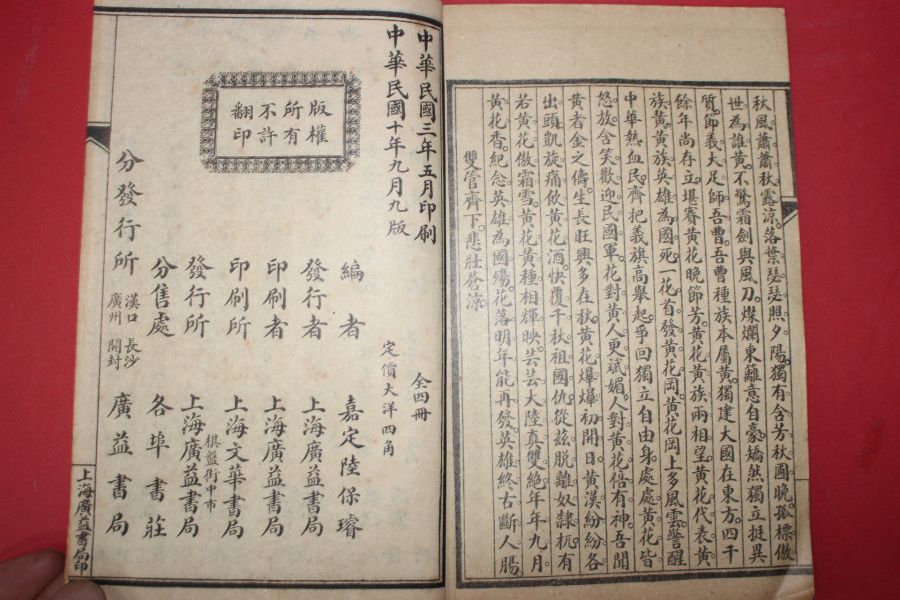 秋風蕭蕭秋露涼。落葉瑟瑟照夕陽。獨有含芳秋圃晩。孤標傲
世為誰黃。不驚霜劍與風刀。燦爛東籬意自豪。矯然獨立挺異
質。節義大足師吾曹。吾曹種族本屬黃。獨建大國在東方。四千
餘年尚存立。堪賽黃花晚節芳。黃花黃族兩相望。黃花代表黃
族黃。黃族英雄為國死。一花首發黃花岡。黃花岡上多風雲。警醒
中華熱血民。齊把義旗高舉起。爭回獨立自由身。處處黃花皆
怒放。含笑歡迎民國軍。花對黃人更斌媚。人對黃花倍有神。吾聞
黃者金之儔。生長旺興多在秋。黃花爆爆初開日。黃漢紛紛各
出頭。凱旋痛飲黃花酒。快覆千秋祖國仇。從茲脫離奴隸杭。有
若黃花傲霜雪。黃花黃種相輝映。芸芸大陸真雙絕。年年九月
黃花香。紀念英雄為國殤。花落明年能再發。英雄終古斷人腸。
雙管齊下。悲壯蒼涼。
中華民國三年五月印刷
中華民國十年九月九版
版權
所有
不許
翻印
全四冊
定價大洋四角
編者 嘉定陸保璿
發行者 上海廣益書局
印刷者 上海廣益書局
印刷所 上海文華書局
發行所 棋盤街中市 上海廣益書局
分售處 各埠書莊
分發行所 漢口 長沙 廣州 開封 廣益書局
上海廣益書局印